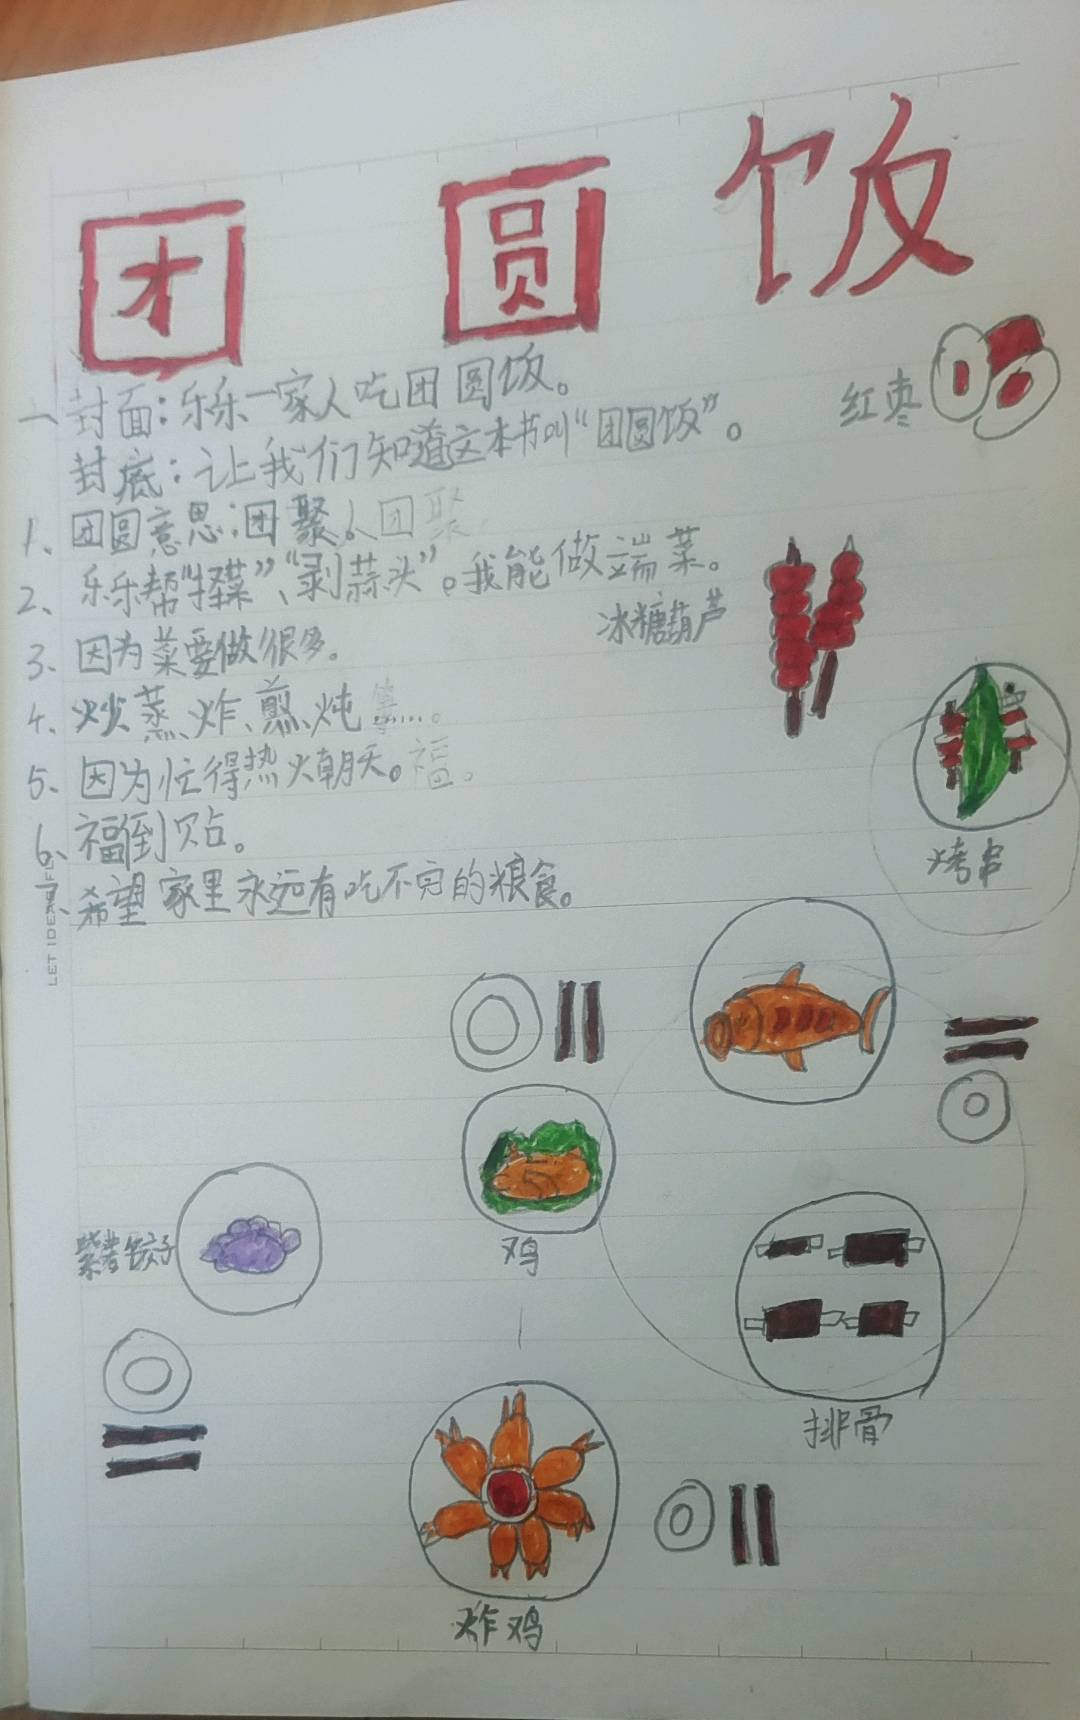 团圆饭
一 封面：乐乐一家人吃团圆饭。
封底：让我们知道这本书叫“团圆饭”。
红枣
1、团圆意思：团聚、团聚
2、乐乐帮“择菜”、“剥蒜头”。我能做端菜。
冰糖葫芦
3、因为菜要做很多。
4、炒、蒸、炸、煎、炖……。
5、因为忙得热火朝天。福。
6、福倒贴。
7、希望家里永远有吃不完的粮食。
LET IDEA
烤串
鸡
饺子
排骨
炸鸡